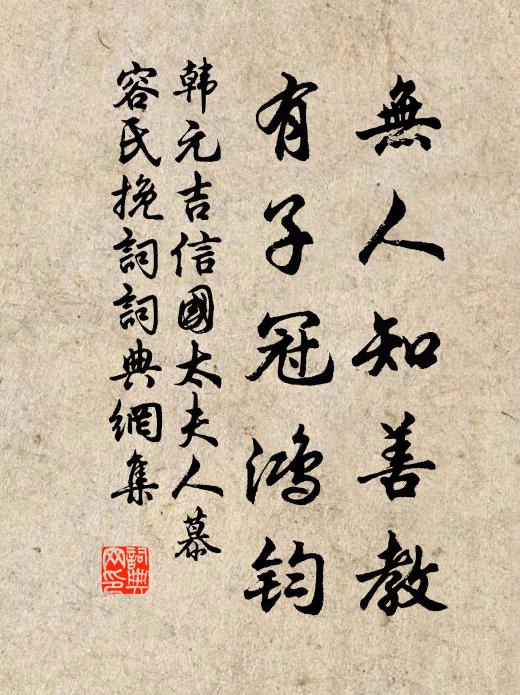 無人知善教
有子冠鴻鈞
韩元吉信國太夫人慕
容氏挽詞詞典網集
詞典
网印